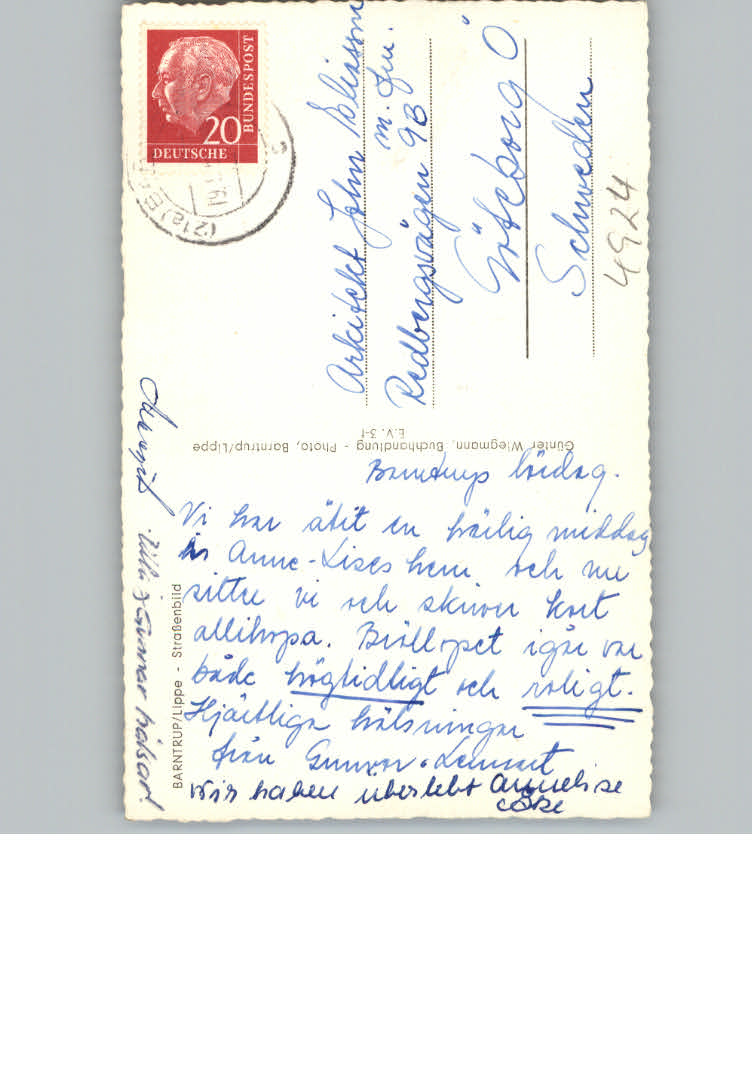 DEUTSCHE
BUNDESPOST
20
(21a)
61
Arkitekt John
m. fru.
Redbergsvägen 9B
Göteborg Ö
Schweden
4924
Günter Wiegmann, Buchhandlung - Photo, Barntrup/Lippe
E.V. 3-f
BARNTRUP/Lippe - Straßenbild
Barntrup lördag.
Vi har ätit en härlig middag
i Anne-Lises hem och nu
sitter vi och skriver kort
allihopa. Bröllopet igår var
både högtidligt och roligt.
Hjärtliga hälsningar
från Gunvor. Lennart
Wir haben überlebt Annelise
Åke
Margit. Gunnar hälsar!